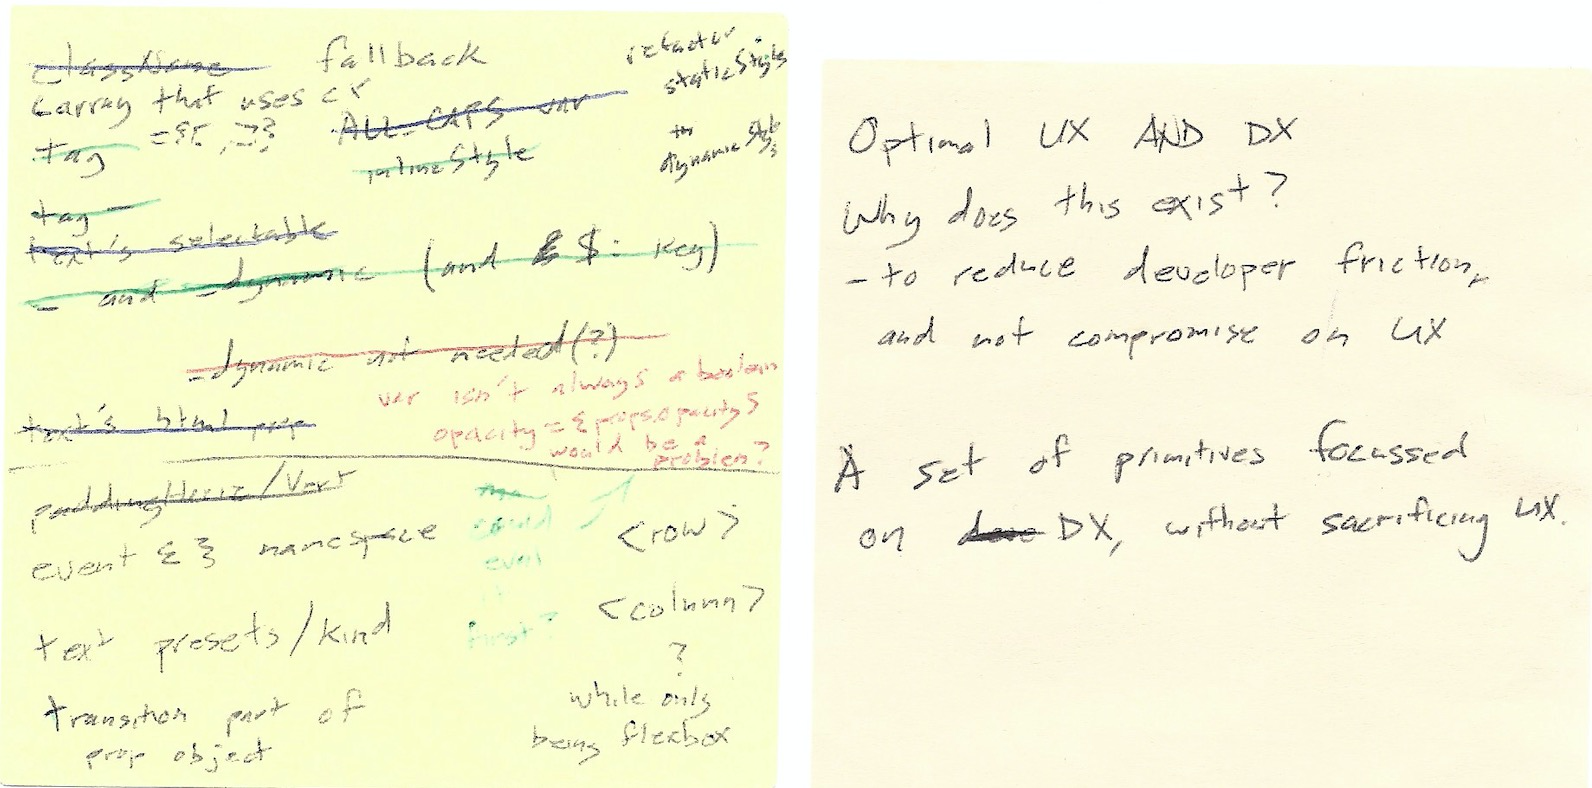 className fallback
array that uses cx
={[ , ]}
tag
ALL_CAPS var
inlineStyle
refactor
staticStyle
to
dynamicStyles
tag
text's selectable
- and _dynamic (and $: key)
_dynamic not needed(?)
var isn't always a boolean
opacity={props.opacity}
would be a
problem?
text's html prop
paddingHoriz/Vert
event { } namespace
could
eval
first?
<row>
<column>
?
while only
being flexbox
text presets/kind
transition part of
prop object
Optimal UX AND DX
Why does this exist?
- to reduce developer friction,
and not compromise on UX
A set of primitives focussed
on DX, without sacrificing UX.